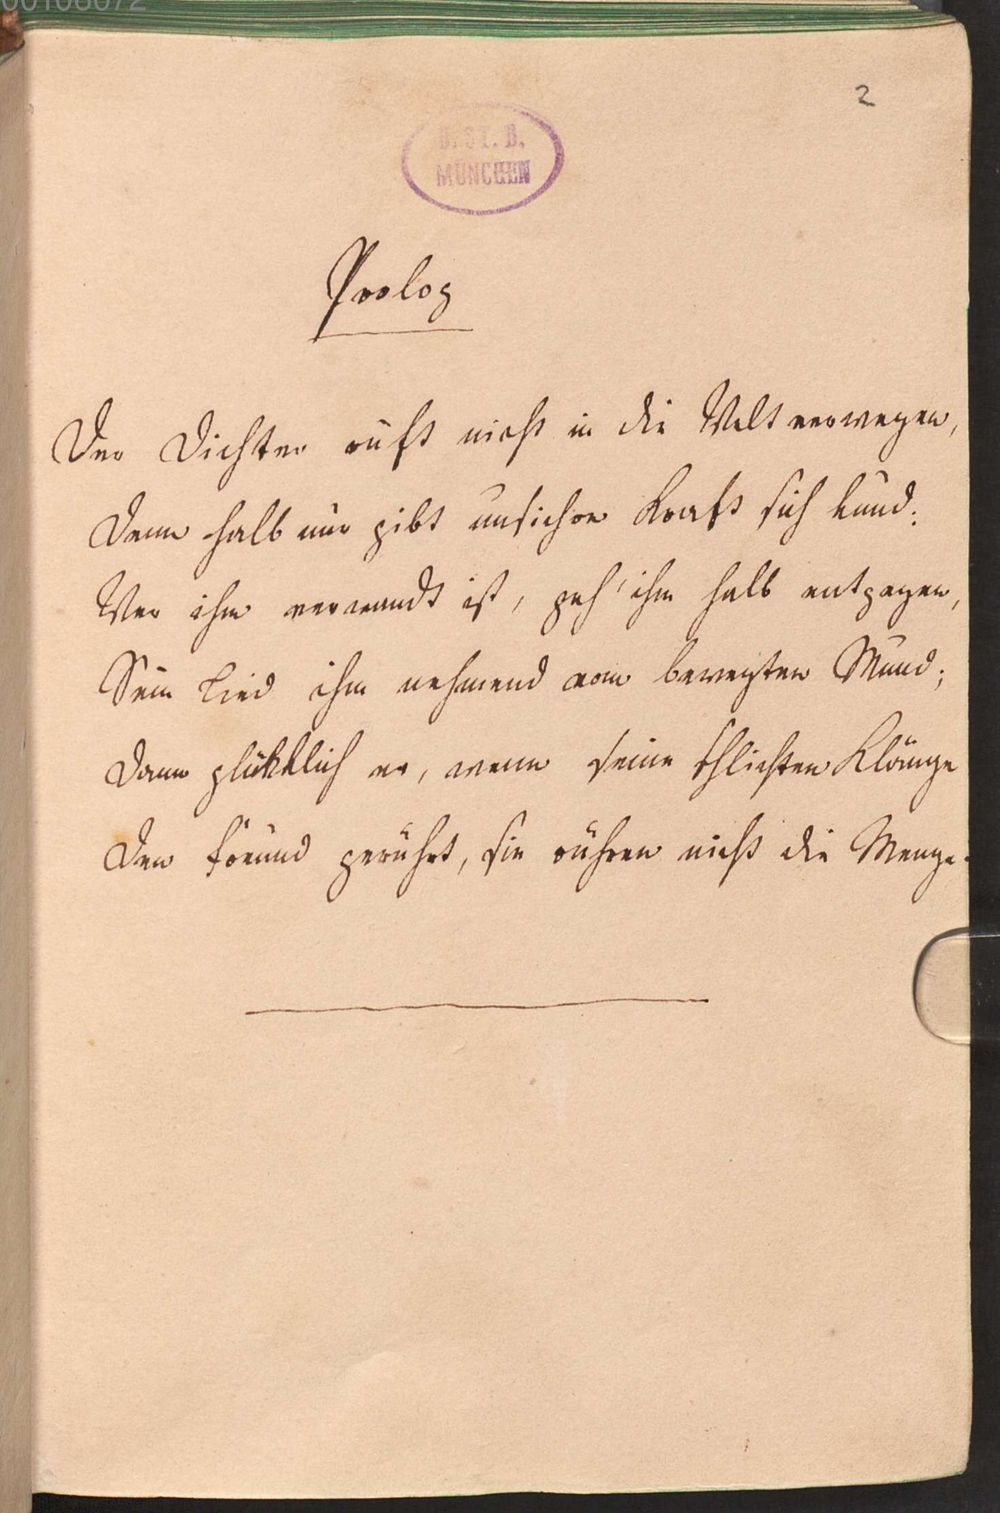 00106072
2
B. ST. B.
MÜNCHEN
Prolog
Der Dichter ruft nicht in die Welt verwegen,
Denn halb nur gibt unsichre Kraft sich kund:
Wer ihm verwandt ist, geh' ihm halb entgegen,
Sein Lied ihm nehmend vom bewegten Mund;
Dann glücklich er, wenn seine schlichten Klänge
Den Freund gerührt, sie rühren nicht die Menge.